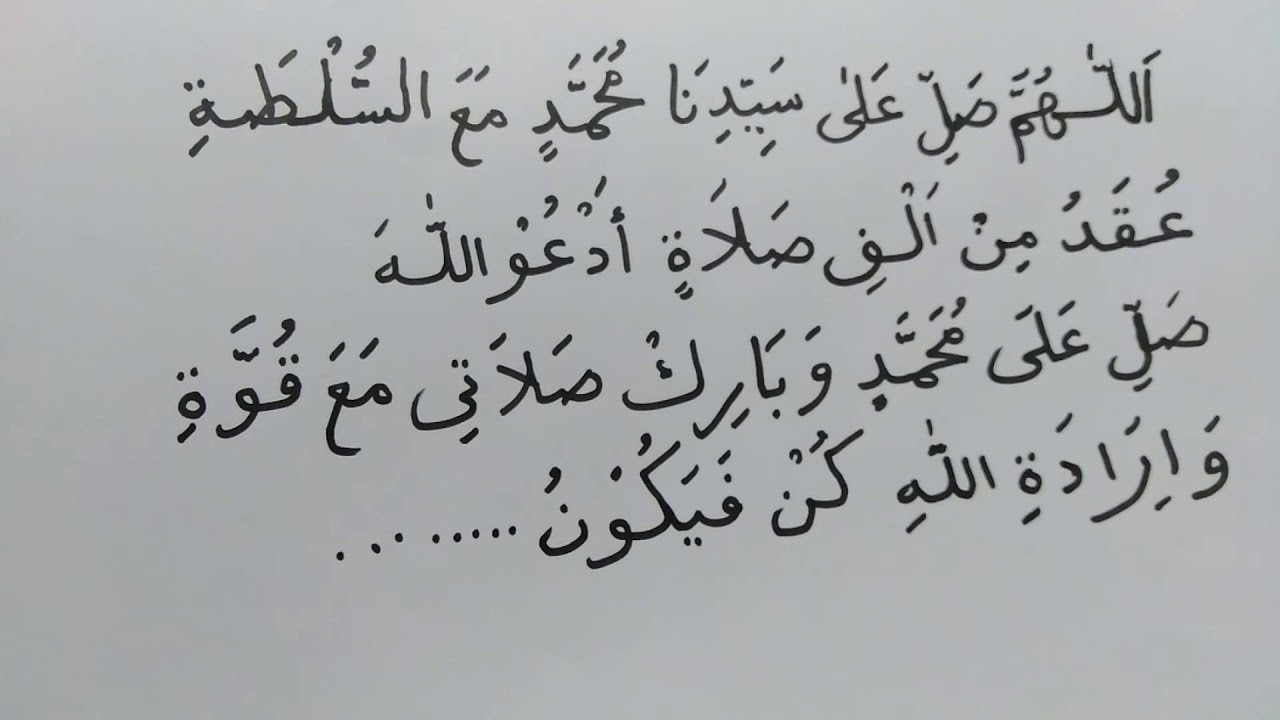 اَللّٰهُمَّ صَلِّ عَلٰى سَيِّدِنَا مُحَمَّدٍ مَعَ السُّلْطَةِ
عُقَدُ مِنْ اَلْفِ صَلَاةٍ أَدْعُوْ اللّٰهَ
صَلِّ عَلَى مُحَمَّدٍ وَبَارِكْ صَلَاتِي مَعَ قُوَّةِ
وَاِرَادَةِ اللّٰهِ كُنْ فَيَكُوْنُ ........